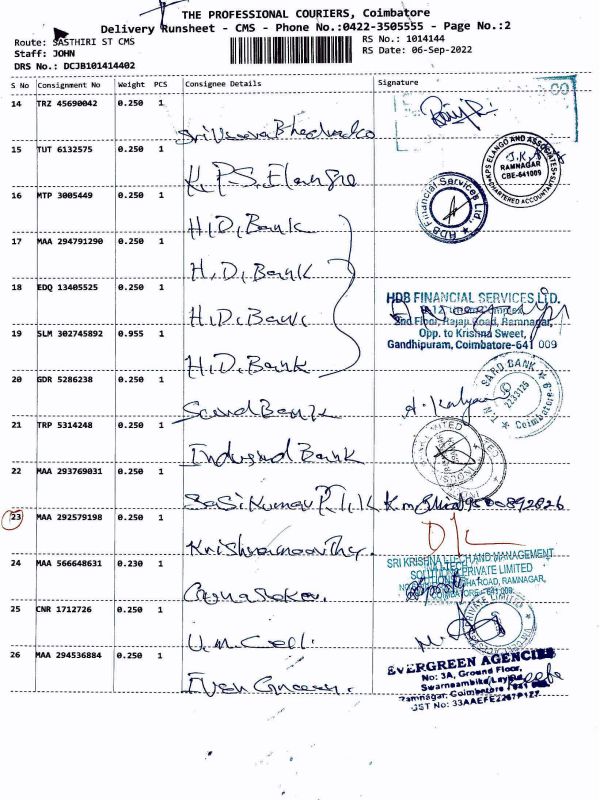 THE PROFESSIONAL COURIERS, Coimbatore
Delivery Runsheet - CMS - Phone No.:0422-3505555 - Page No.:2
Route: SASTHIRI ST CMS
RS No.: 1014144
Staff: JOHN
RS Date: 06-Sep-2022
DRS No.: DCJB101414402
S No Consignment No Weight PCS Consignee Details Signature
14 TRZ 45690042 0.250 1
15 TUT 6132575 0.250 1
K.P.S. Elango
KPS ELANGO AND ASSOCIATES
RAMNAGAR
CBE-641009
CHARTERED ACCOUNTANTS
16 MTP 3005449 0.250 1 H.D. Bank
HDB Financial Services Ltd.,
17 MAA 294791290 0.250 1
H.D. Bank
18 EDQ 13405525 0.250 1
H.D. Bank
HDB FINANCIAL SERVICES LTD.
2nd Floor, Rajaji Road, Ramnagar,
Opp. to Krishna Sweet,
Gandhipuram, Coimbatore-641 009
19 SLM 302745892 0.955 1
H.D. Bank
20 GDR 5286238 0.250 1
Scard Bank
A. Kalyan
SARD BANK
2233125
Coimbatore-9
21 TRP 5314248 0.250 1
Indusind Bank
22 MAA 293769031 0.250 1
SaSi Kumar
23 MAA 292579198 0.250 1
Krishnamoorthy.
D/L
24 MAA 566648631 0.230 1
SRI KRISHNA I-TECH AND MANAGEMENT
SOLUTIONS PRIVATE LIMITED
ROAD, RAMNAGAR,
COIMBATORE - 641 009
25 CNR 1712726 0.250 1
U.M. Cell.
26 MAA 294536884 0.250 1
Ever Green.
EVERGREEN AGENCIES
No: 3A, Ground Floor,
Swarnambika Layout
Ramnagar, Coimbatore - 641 009
GST No: 33AAEFE2267P1Z7